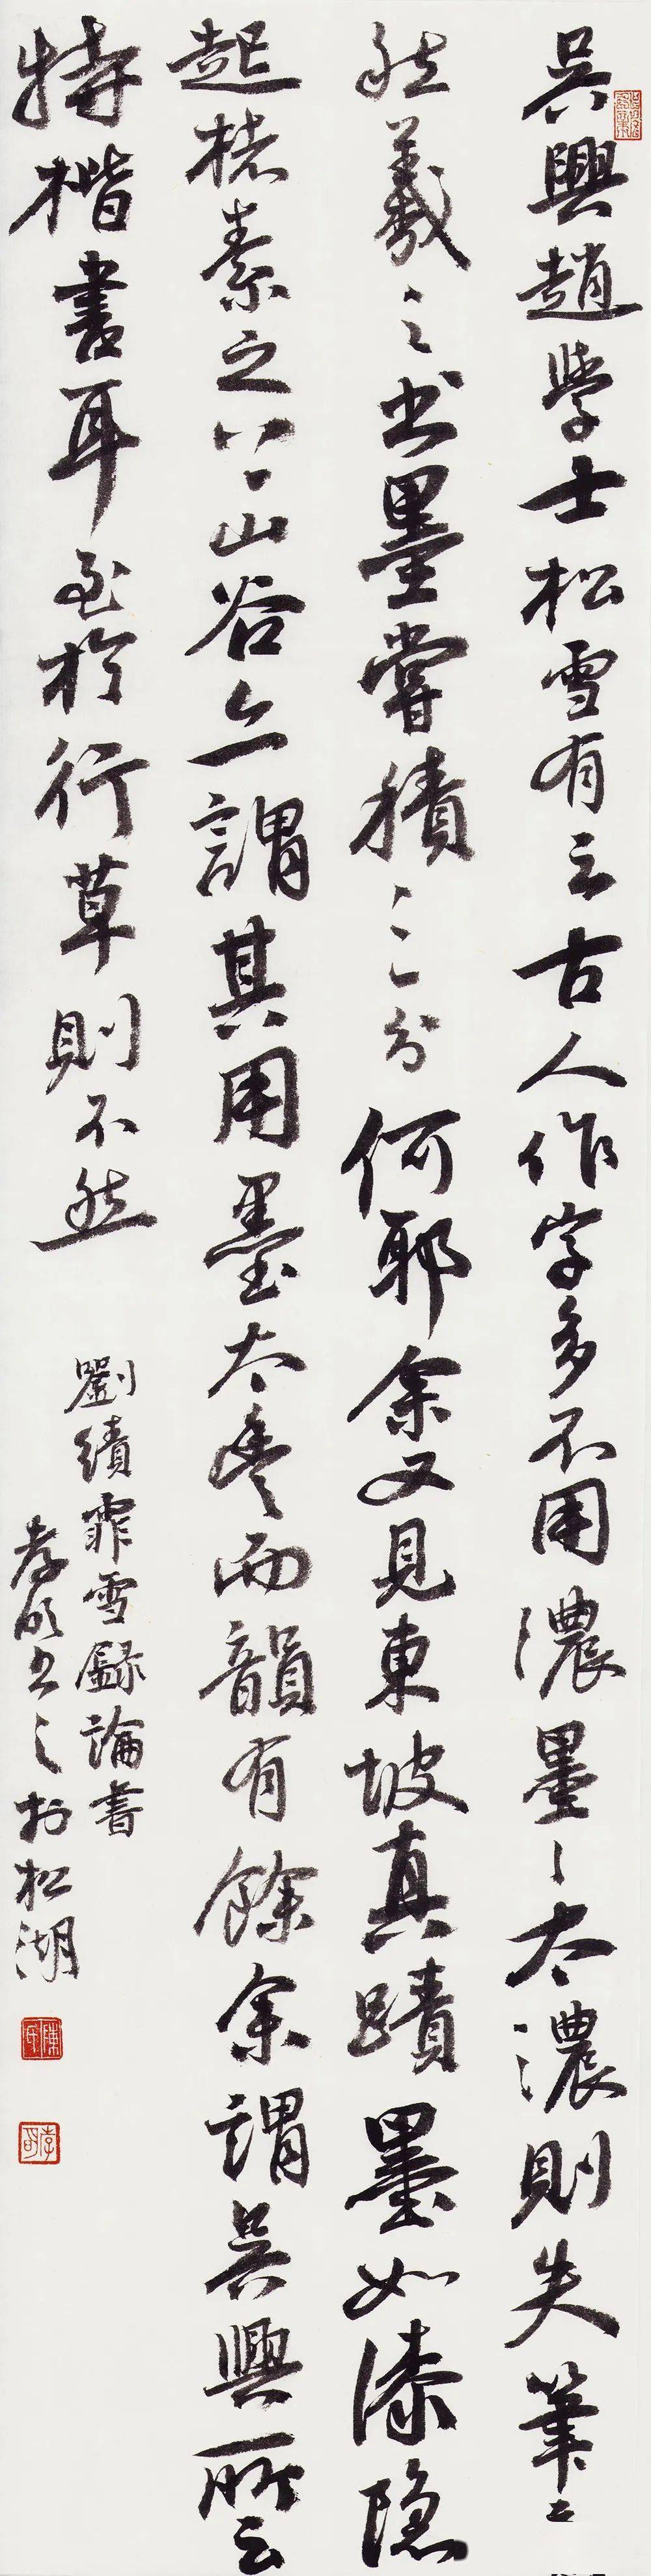 吳興趙學士松雪有云古人作字多不用濃墨〻太濃則失筆
然羲之书墨嘗積三分何耶余又見東坡真蹟墨如漆隱
起楮素之間山谷亦謂其用墨太豐而韻有餘余謂吳興所云
特楷書耳至於行草則不然
劉績霏雪錄論書
孝書之於松湖
陳氏